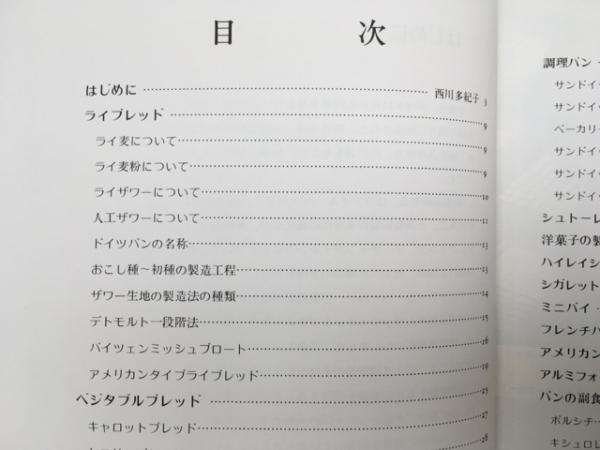 目次
はじめに 西川多紀子 3
ライブレッド 9
ライ麦について 9
ライ麦粉について 9
ライザワーについて 10
人工ザワーについて 11
ドイツパンの名称 13
おこし種～初種の製造工程 13
ザワー生地の製造法の種類 14
デトモルト一段階法 15
バイツェンミッシュブロート 16
アメリカンタイプライブレッド 19
ベジタブルブレッド 25
キャロットブレッド 27
調理パン
サンドイッ
サンドイッ
ベーカリー
サンドイッ
サンドイッ
サンドイッ
シュトーレ
洋菓子の製
ハイレイシ
シガレット
ミニパイ
フレンチパ
アメリカン
アルミフォ
パンの副食
ボルシチ
キシュロレ